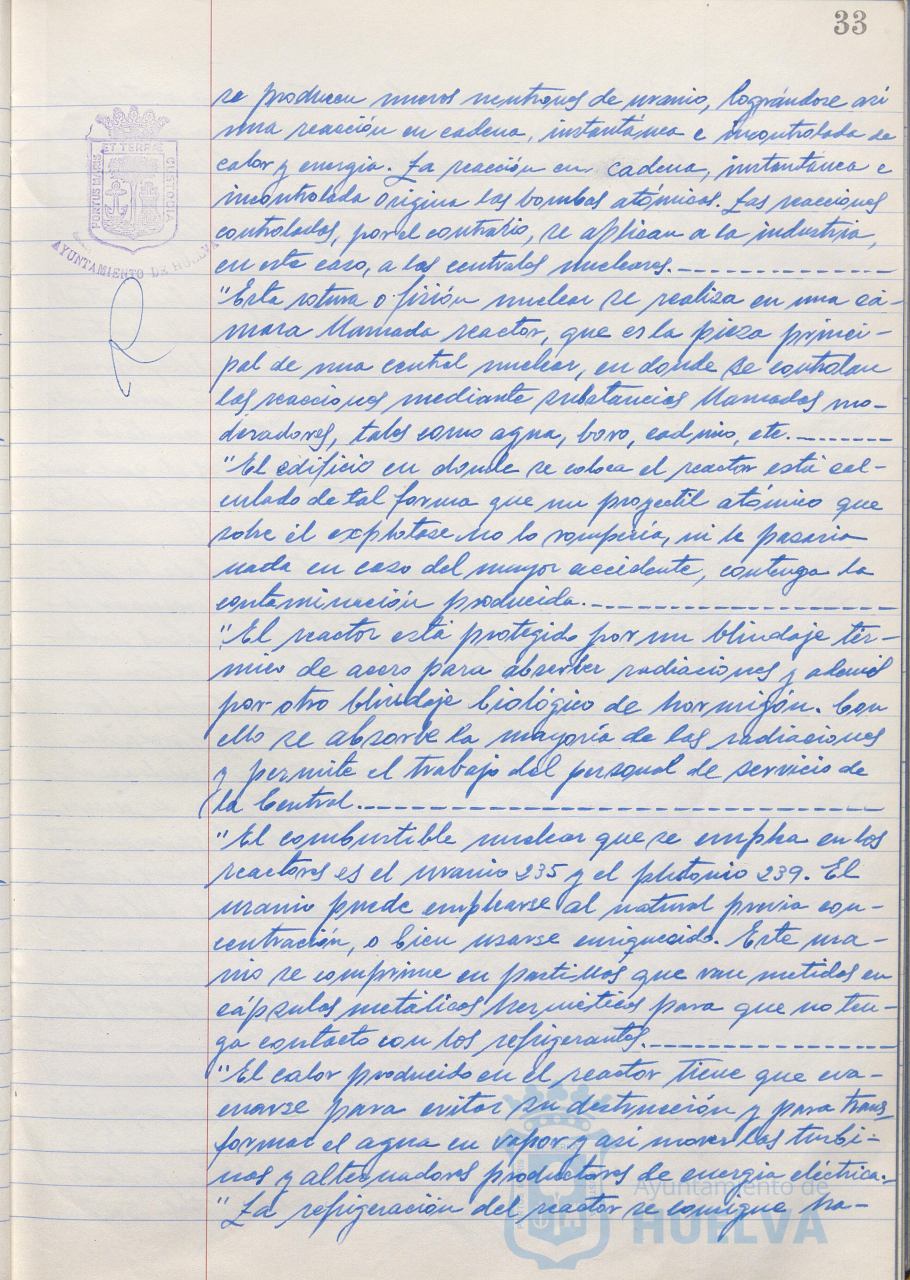 33
se producen nuevos neutrones de uranio, lográndose así
una reacción en cadena, instantánea e incontrolada de
calor y energía. La reacción en cadena, instantánea e
incontrolada origina las bombas atómicas. Las reacciones
controladas, por el contrario, se aplican a la industria,
en este caso, a las centrales nucleares.
"Esta rotura o fisión nuclear se realiza en una cá-
mara llamada reactor, que es la pieza princi-
pal de una central nuclear, en donde se controlan
las reacciones mediante substancias llamadas mo-
deradores, tales como agua, boro, cadmio, etc.
"El edificio en donde se coloca el reactor está cal-
culado de tal forma que un proyectil atómico que
sobre él explotase no lo rompería, ni le pasaría
nada en caso del mayor accidente, contenga la
contaminación producida.
"El reactor está protegido por un blindaje tér-
mico de acero para absorber radiaciones y además
por otro blindaje biológico de hormigón. Con
ello se absorbe la mayoría de las radiaciones
y permite el trabajo del personal de servicio de
la Central.
"El combustible nuclear que se emplea en los
reactores es el uranio 235 y el plutonio 239. El
uranio puede emplearse al natural previa con-
centración, o bien usarse enriquecido. Este ura-
nio se comprime en pastillas que van metidas en
cápsulas metálicas herméticas para que no ten-
ga contacto con los refrigerantes.
"El calor producido en el reactor tiene que eva-
cuarse para evitar su destrucción y para trans
formar el agua en vapor y así mover las turbi-
nas y alternadores productores de energía eléctrica.
"La refrigeración del reactor se consigue ha-
ET TERRÆ
PORTUS MARIS
CUSTODIA
AYUNTAMIENTO DE HUELVA
Ayuntamiento de
HUELVA